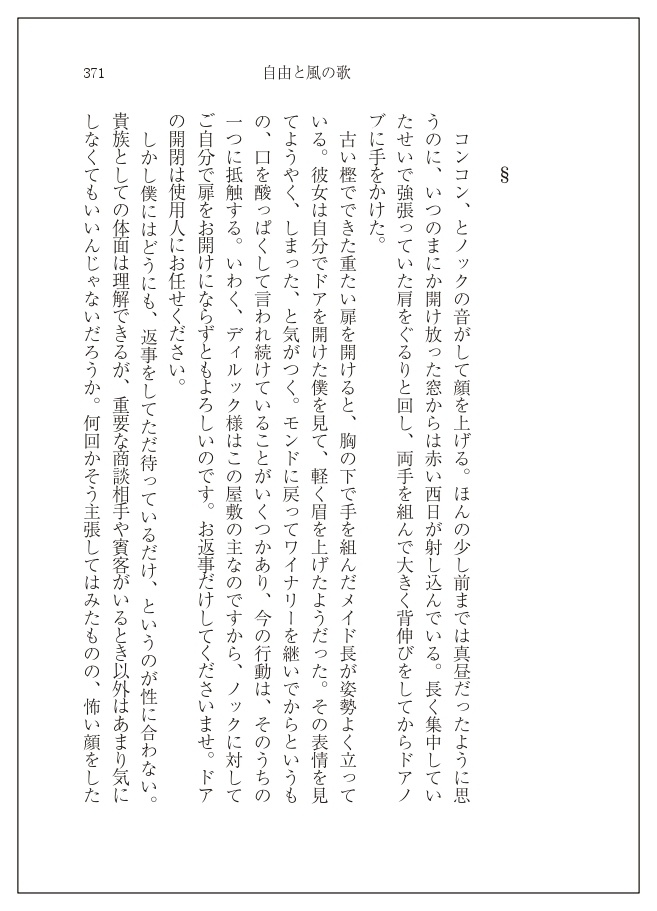 371
自由と風の歌
§
コンコン、とノックの音がして顔を上げる。ほんの少し前までは真昼だったように思
うのに、いつのまにか開け放った窓からは赤い西日が射し込んでいる。長く集中してい
たせいで強張っていた肩をぐるりと回し、両手を組んで大きく背伸びをしてからドアノ
ブに手をかけた。
古い樫でできた重たい扉を開けると、胸の下で手を組んだメイド長が姿勢よく立って
いる。彼女は自分でドアを開けた僕を見て、軽く眉を上げたようだった。その表情を見
てようやく、しまった、と気がつく。モンドに戻ってワイナリーを継いでからというも
の、口を酸っぱくして言われ続けていることがいくつかあり、今の行動は、そのうちの
一つに抵触する。いわく、ディルック様はこの屋敷の主なのですから、ノックに対して
ご自分で扉をお開けにならずともよろしいのです。お返事だけしてくださいませ。ドア
の開閉は使用人にお任せください。
しかし僕にはどうにも、返事をしてただ待っているだけ、というのが性に合わない。
貴族としての体面は理解できるが、重要な商談相手や賓客がいるとき以外はあまり気に
しなくてもいいんじゃないだろうか。何回かそう主張してはみたものの、怖い顔をした